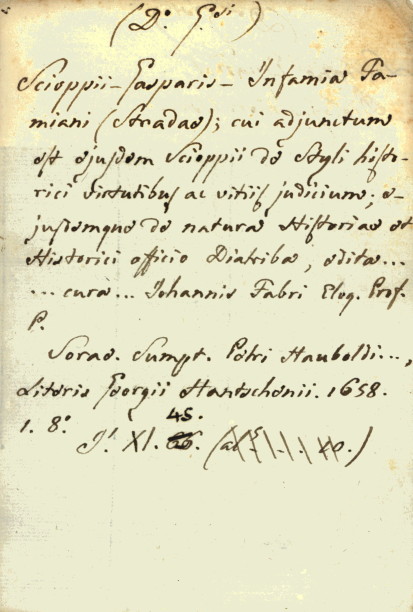 (D.º G.si)
Scioppii - Gasparis - Infamia Fa-
miani (Stradae); cui adjunctum
est ejusdem Scioppii de Styli histo-
rici virtutibus ac vitiis judicium; e-
jusdemque de natura Historiae et
Historici officio Diatriba, edita...
... cura... Johannis Fabri Eloq. Prof.
P.
Sorae. Sumpt. Petri Hauboldi...,
Literis Georgii Hantschenii. 1658.
1. 8.º
45.
J.¹ XI.